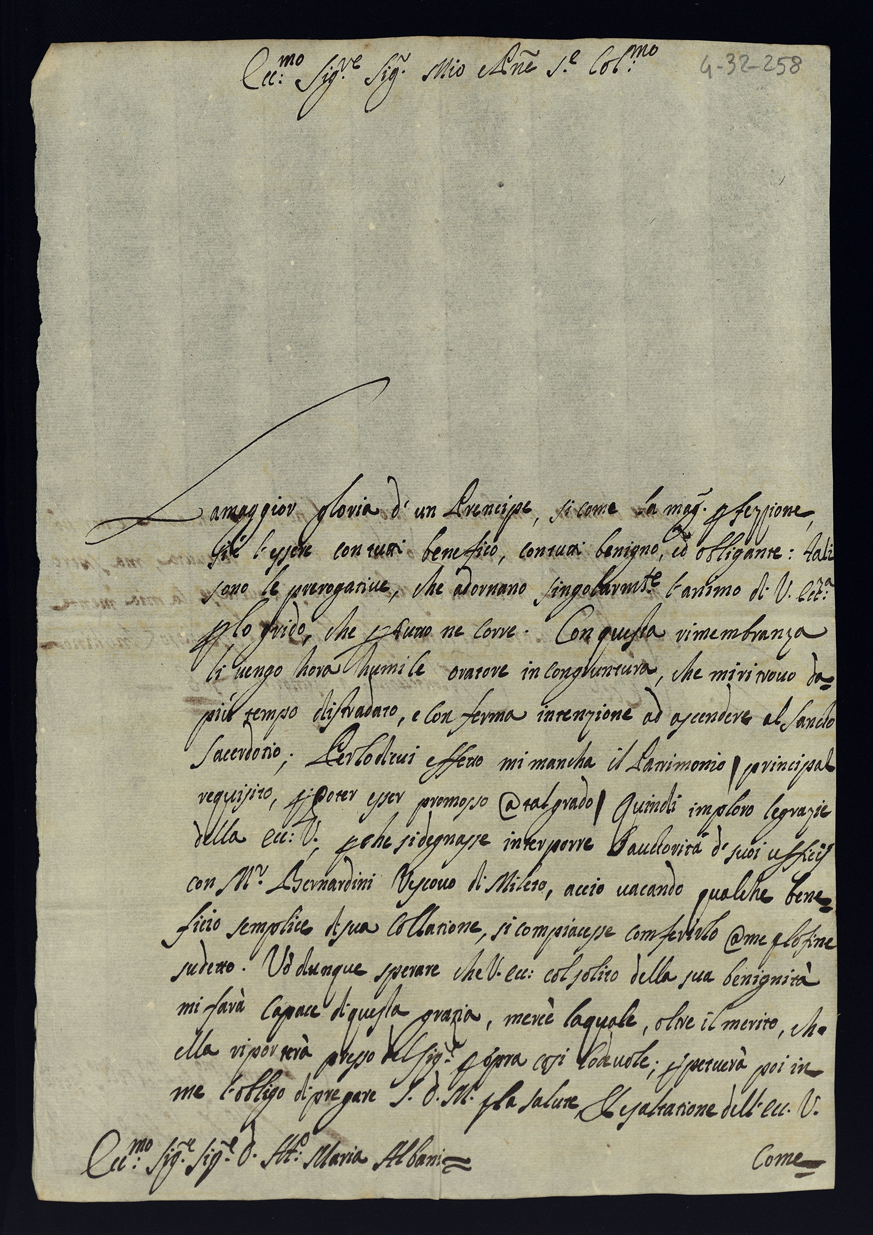 Ecc:mo Sigre Sigr Mio e Pnē S.e Col:mo
4-32-258
La maggior gloria d'un Prencipe, si come la magr. pfezzione,
si è l'essere con tutti benefico, con tutti benigno, ed obligante: tali
sono le prerogative, che adornano singolarmte l'animo di V. Ecc.za
plo grido, che p tutto ne corre. Con questa rimembranza
li vengo hora humile oratore in congiuntura, che mi ritrovo da
più tempo distradato, e con ferma intenzione ad ascendere al Sancto
Sacerdotio; Perlodicui effetto mi mancha il Patrimonio / principal
requisito, p poter esser promosso @ tal grado / Quindi imploro le grazie
della Ecc: V., pche si degnasse interporre l'auctorità d' suoi ufficij
con Mr. Bernardini Vescovo di Mileto, acciò vacando qualche bene=
ficio semplice di sua Collatione, si compiacesse conferirlo @ me plo fine
sudetto. Vò dunque sperare che V. Ecc: col solito della sua benignità
mi farà capace di questa grazia, mercè la quale, oltre il merito, che
ella riporterà presso del Sigr.e p opra così lodevole; ppetuerà poi in
me l'obligo di pregare S. D. M. pla salute, & esaltatione dell'Ecc. V.
Ecc:mo Sigr.e Sigr.e D. Maria Albani=
Come=